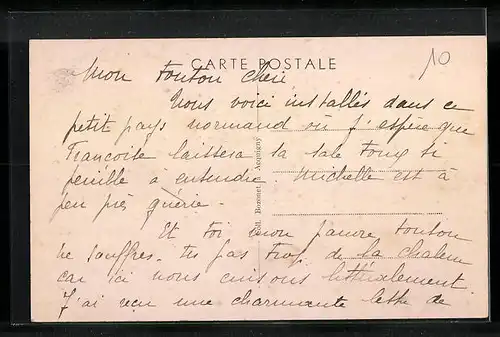 CARTE POSTALE
10
Mon Tonton Chéri
Nous voici installés dans ce
petit pays normand où j'espère que
Françoise laissera sa sale toux si
pénible a entendre. Michelle est à
peu près guérie.
Et toi mon pauvre tonton
ne souffres-tu pas trop de la chaleur
car ici nous cuisons littéralement.
J'ai reçu une charmante lettre de
Edit. Acquigny